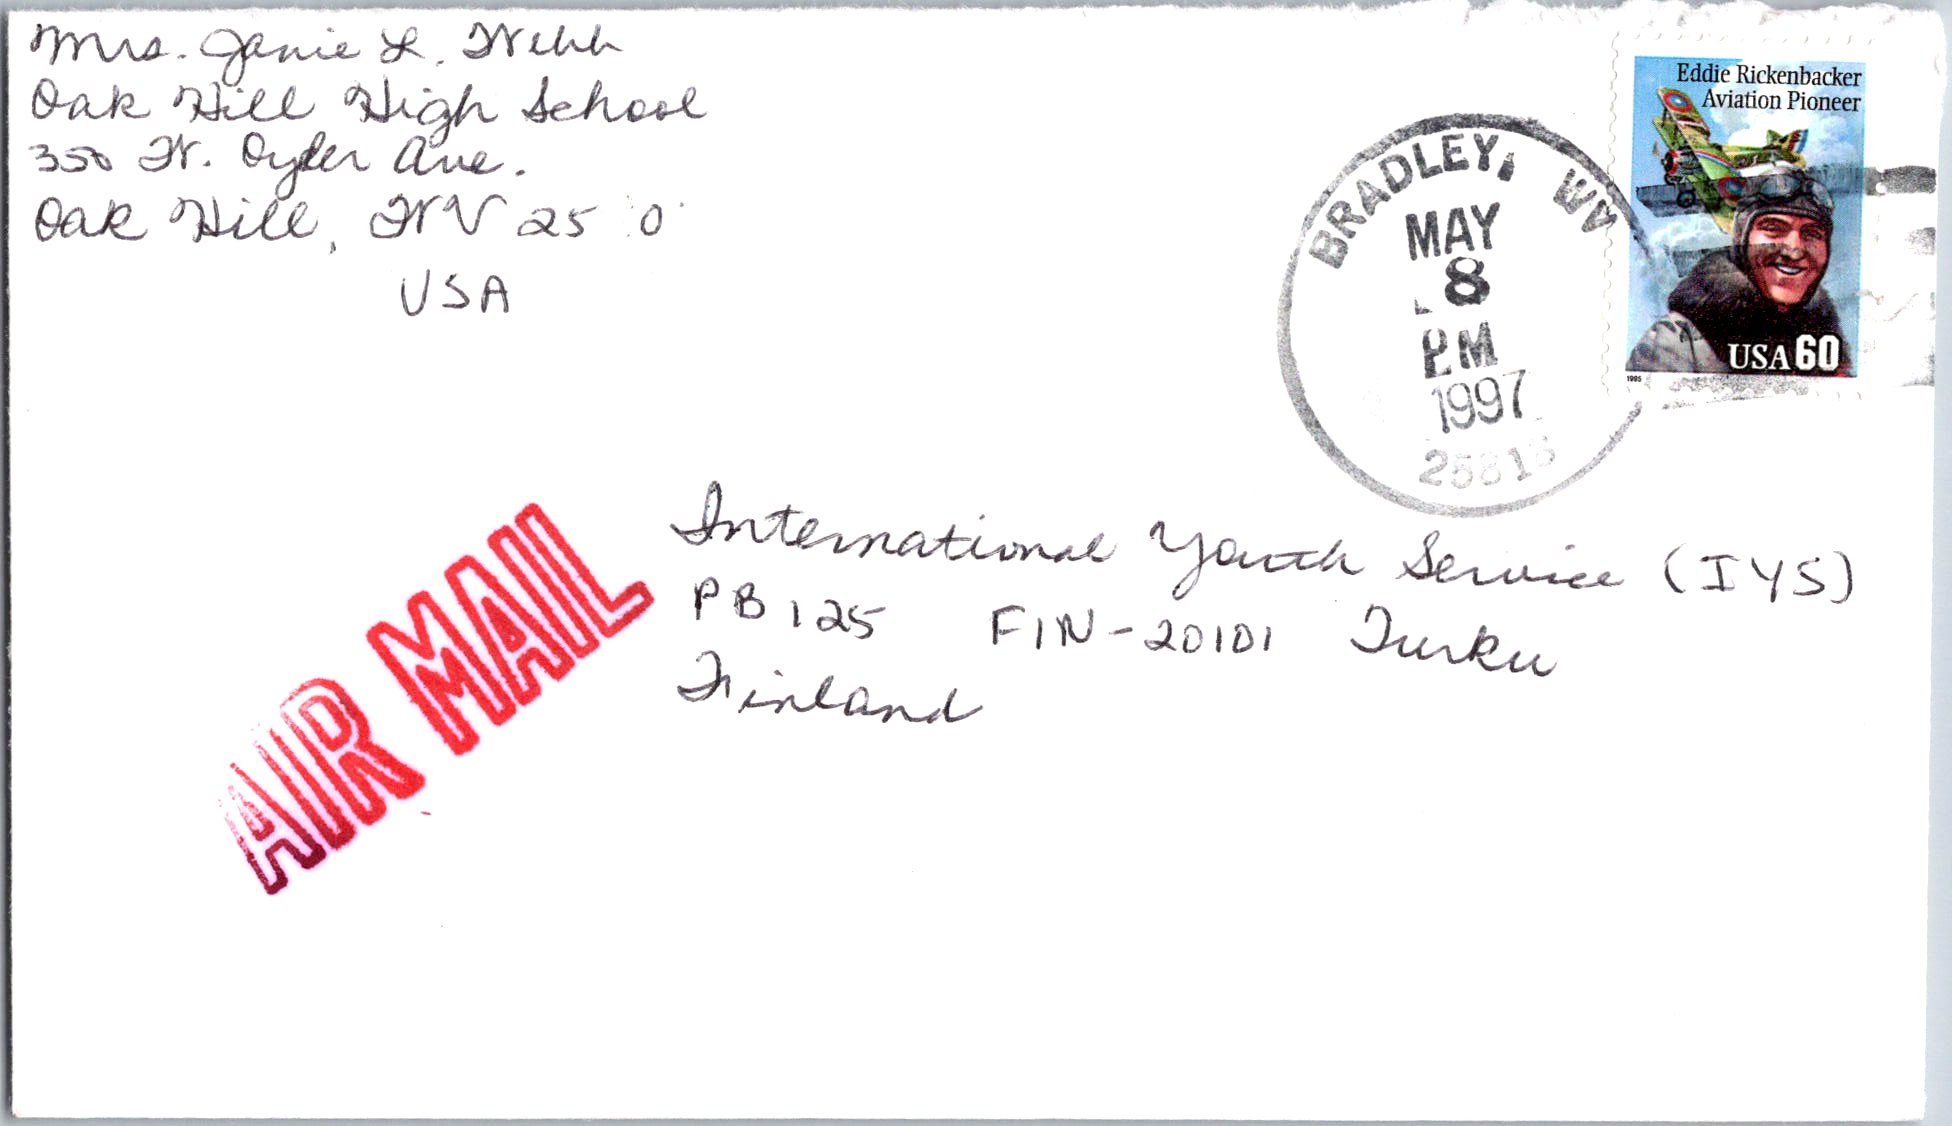 Mrs. Janie L. Webb
Oak Hill High School
350 W. Oyler Ave.
Oak Hill, WV 25 0
USA
Eddie Rickenbacker
Aviation Pioneer
USA 60
1995
BRADLEY, WV
MAY
8
PM
1997
25818
AIR MAIL
International Youth Service (IYS)
PB 125 FIN-20101 Turku
Finland